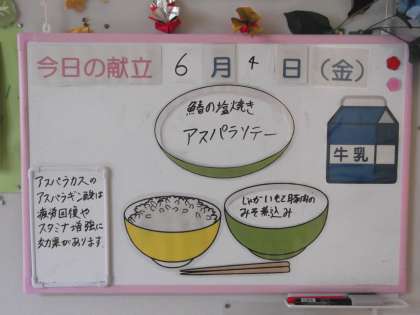 今日の献立 6月4日(金)
鯖の塩焼き
アスパラソテー
牛乳
アスパラガスの
アスパラギン酸は
疲労回復や
スタミナ増強に
効果があります
じゃがいもと豚肉の
みそ煮込み